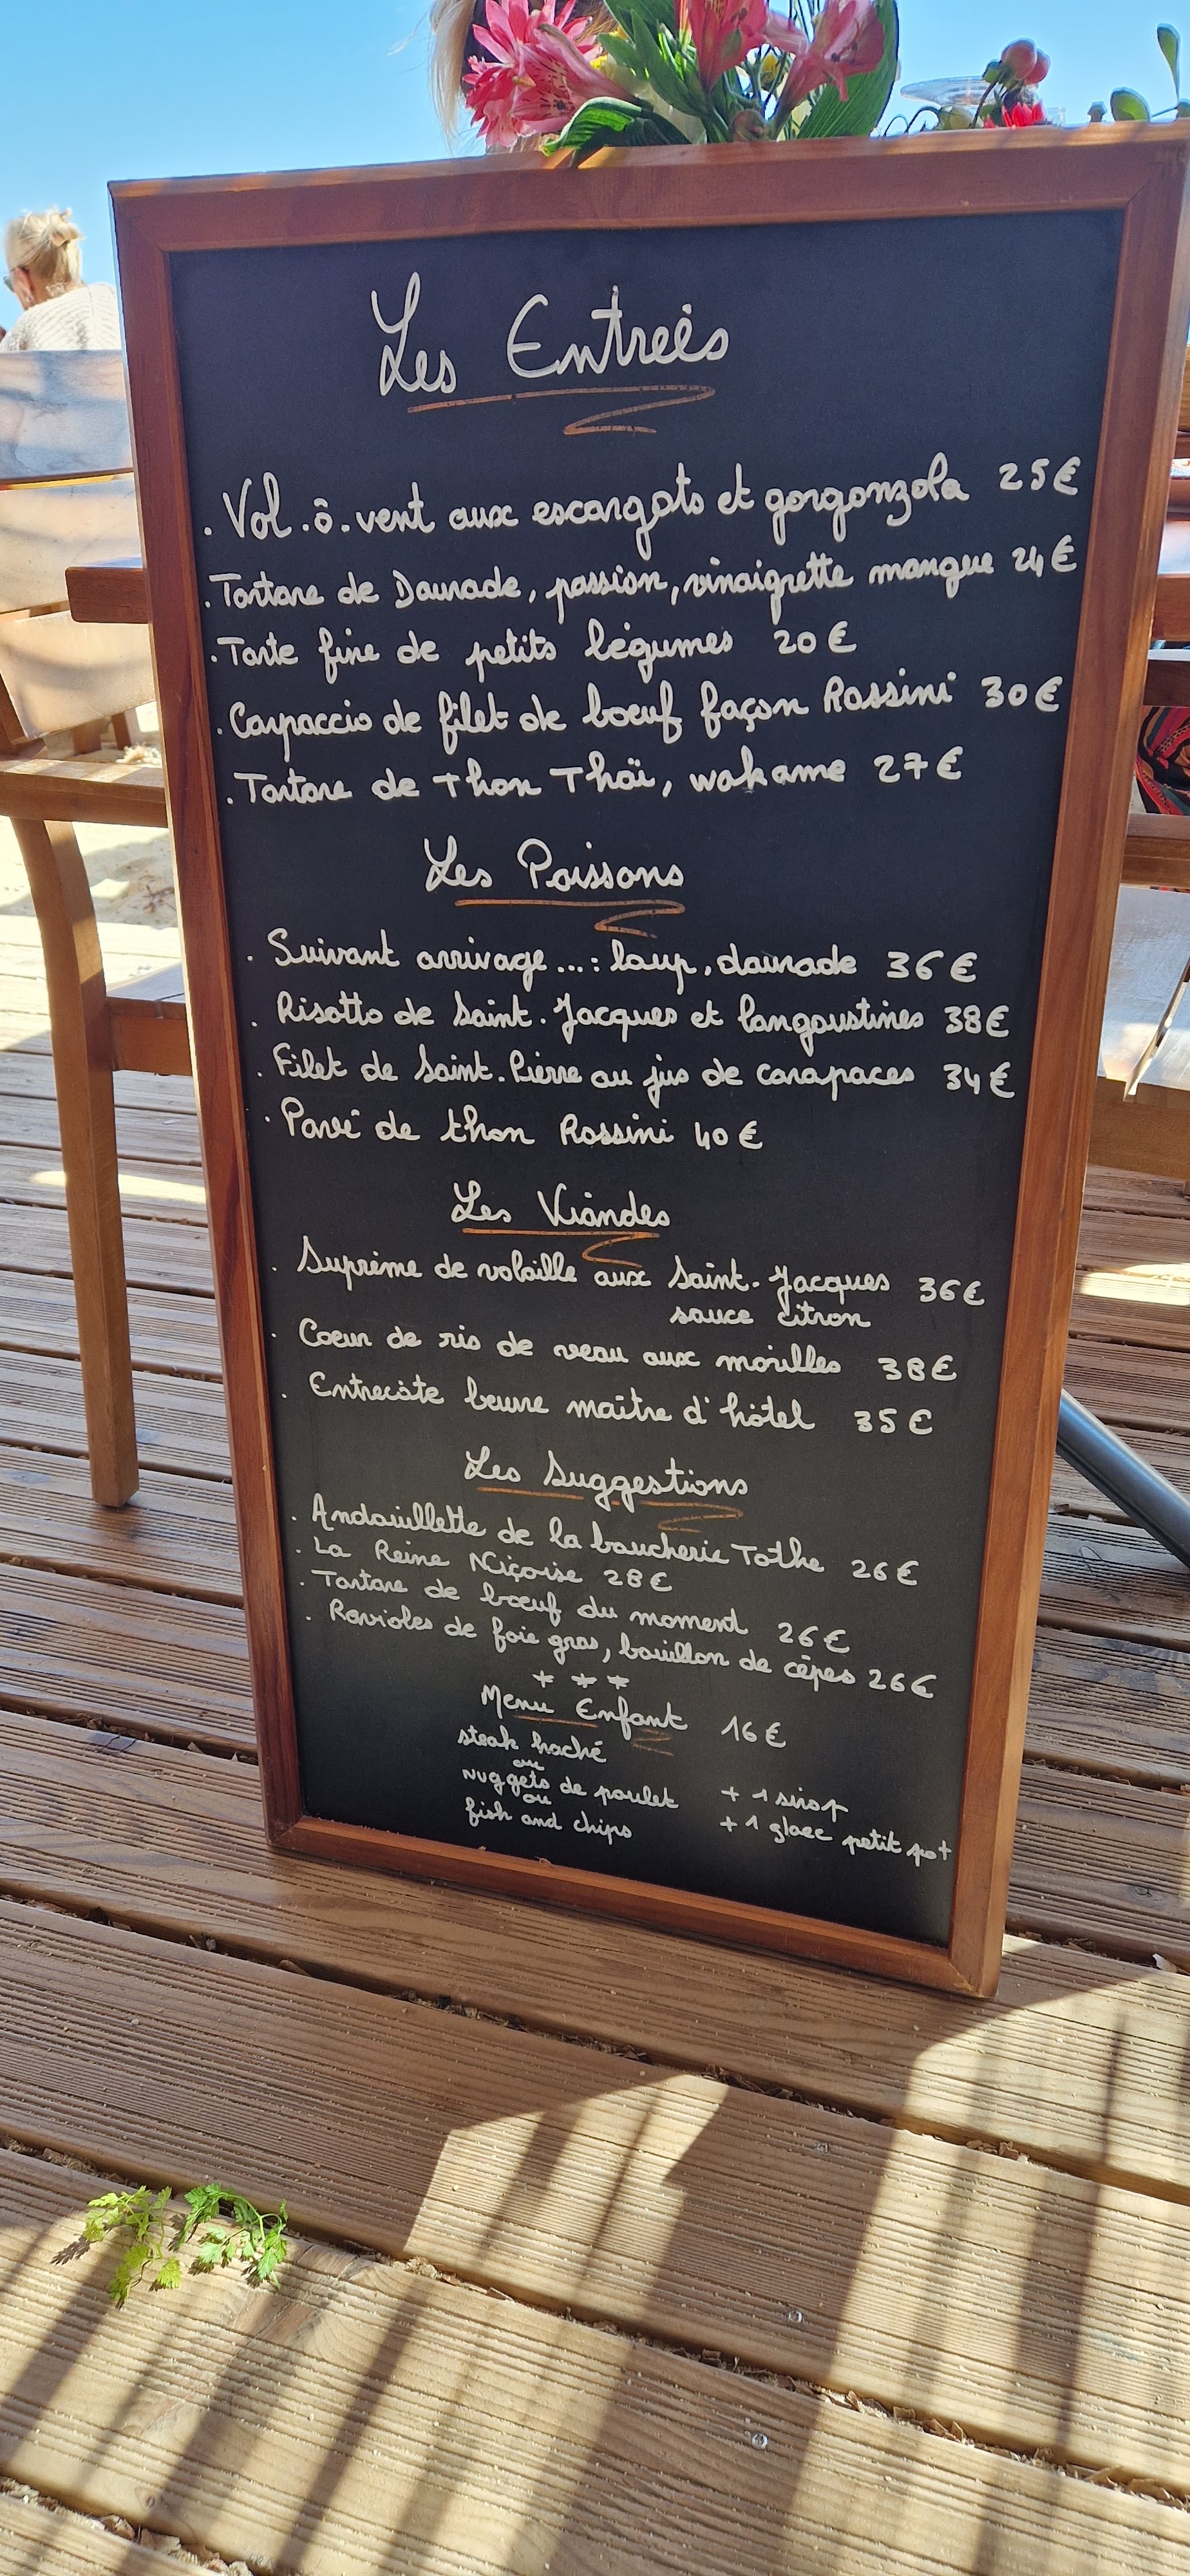 Les Entrées
. Vol.ô.vent aux escargots et gorgonzola 25€
. Tartare de Daurade, passion, vinaigrette mangue 24€
. Tarte fine de petits légumes 20€
. Carpaccio de filet de boeuf façon Rossini 30€
. Tartare de Thon Thaï, wakame 27€
Les Poissons
. Suivant arrivage...: loup, daurade 36€
. Risotto de Saint.Jacques et langoustines 38€
. Filet de Saint.Pierre au jus de carapaces 34€
. Pavé de thon Rossini 40€
Les Viandes
. Suprême de volaille aux Saint-Jacques 36€
sauce citron
. Coeur de ris de veau aux morilles 38€
. Entrecôte beurre maître d'hôtel 35€
Les Suggestions
. Andouillette de la boucherie Tothe 26€
. La Reine Niçoise 28€
. Tartare de boeuf du moment 26€
. Ravioles de foie gras, bouillon de cèpes 26€
* * *
Menu Enfant 16€
steak haché
ou
nuggets de poulet + 1 sirop
ou
fish and chips + 1 glace petit pot